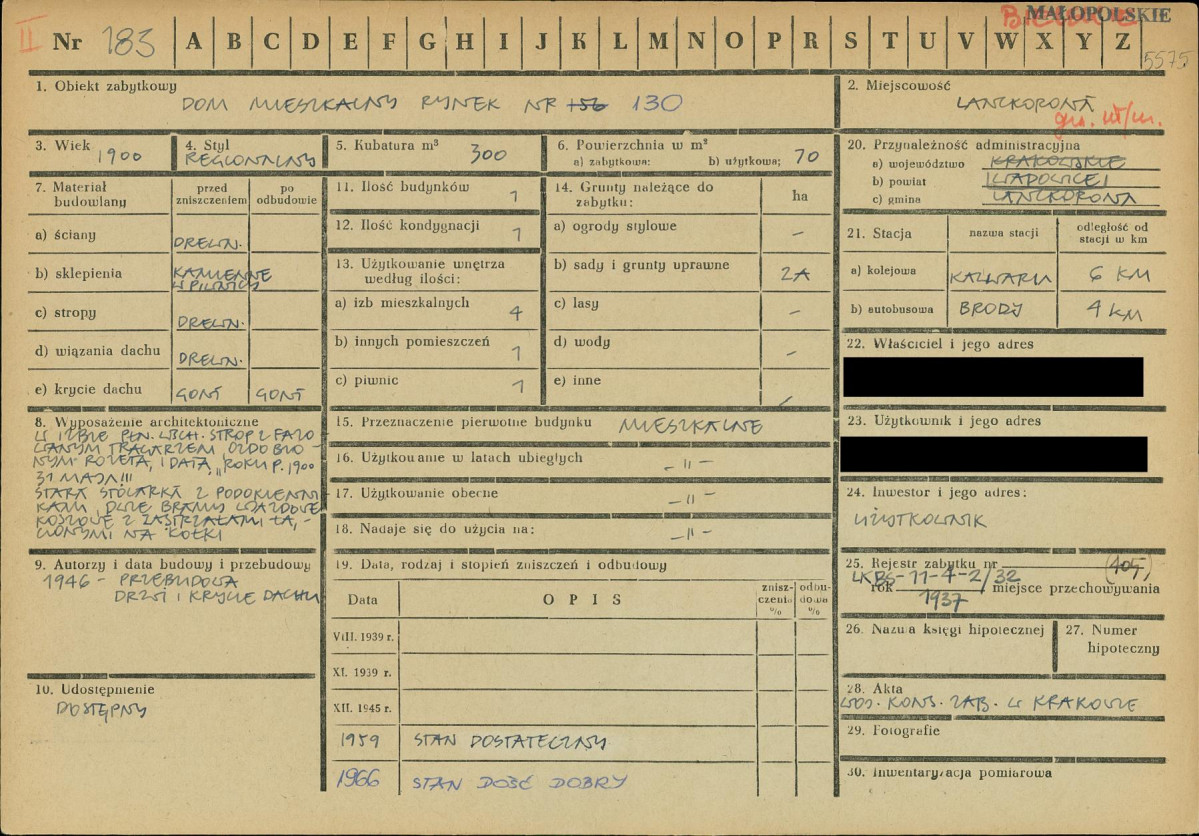 II Nr 183 A B C D E F G H I J K L M N O P R S T U V W X Y Z
MAŁOPOLSKIE
5575
1. Obiekt zabytkowy
DOM MIESZKALNY RYNEK NR 156 130
2. Miejscowość
LANCKORONA
gm. w/m.
3. Wiek 1900
4. Styl
REGIONALNY
5. Kubatura m³ 300
6. Powierzchnia w m²
a) zabytkowa: b) użytkowa: 70
20. Przynależność administracyjna
a) województwo KRAKOWSKIE
b) powiat WADOWICE
c) gmina LANCKORONA
7. Materiał budowlany
przed zniszczeniem
po odbudowie
a) ściany DREWN.
b) sklepienia KAMIENNE
W PIWNICY
c) stropy DREWN.
d) wiązania dachu DREWN.
e) krycie dachu GONT GONT
11. Ilość budynków 1
12. Ilość kondygnacji 1
13. Użytkowanie wnętrza
według ilości:
a) izb mieszkalnych 4
b) innych pomieszczeń 1
c) piwnic 1
14. Grunty należące do
zabytku: ha
a) ogrody stylowe –
b) sady i grunty uprawne 2A
c) lasy –
d) wody –
e) inne –
21. Stacja
nazwa stacji
odległość od
stacji w km
a) kolejowa KALWARIA 6 KM
b) autobusowa BRODY 4 KM
22. Właściciel i jego adres
23. Użytkownik i jego adres
24. Inwestor i jego adres:
UŻYTKOWNIK
8. Wyposażenie architektoniczne
W IZBIE PŁN. WSCH. STROP Z FAZO
WANYM TRAGARZEM, OZDOBIO-
NYM ROZETĄ, I DATĄ, "ROKU P. 1900
31 MAJA!!!
STARA STOLARKA Z PODOKIENNI
KAMI, DWIE BRAMY WJAZDOWE
KOSZOWE Z ZASTRZAŁAMI ŁĄ,-
CZONYMI NA KOŁKI
15. Przeznaczenie pierwotne budynku MIESZKALNE
16. Użytkowanie w latach ubiegłych – " –
17. Użytkowanie obecne – " –
18. Nadaje się do użycia na: – " –
9. Autorzy i data budowy i przebudowy
1946 – PRZEBUDOWA
DRZWI I KRYCIE DACHU
19. Data, rodzaj i stopień zniszczeń i odbudowy
Data OPIS
znisz-
czenia
%
odbu-
dowa
%
VIII. 1939 r.
XI. 1939 r.
XII. 1945 r.
1959 STAN DOSTATECZNY
1966 STAN DOŚĆ DOBRY
25. Rejestr zabytku nr (405)
LKBS-11-4-2/32
rok 1937 miejsce przechowywania
26. Nazwa księgi hipotecznej
27. Numer
hipoteczny
10. Udostępnienie
DOSTĘPNY
28. Akta
WOJ. KONS. ZAB. W KRAKOWIE
29. Fotografie
30. Inwentaryzacja pomiarowa